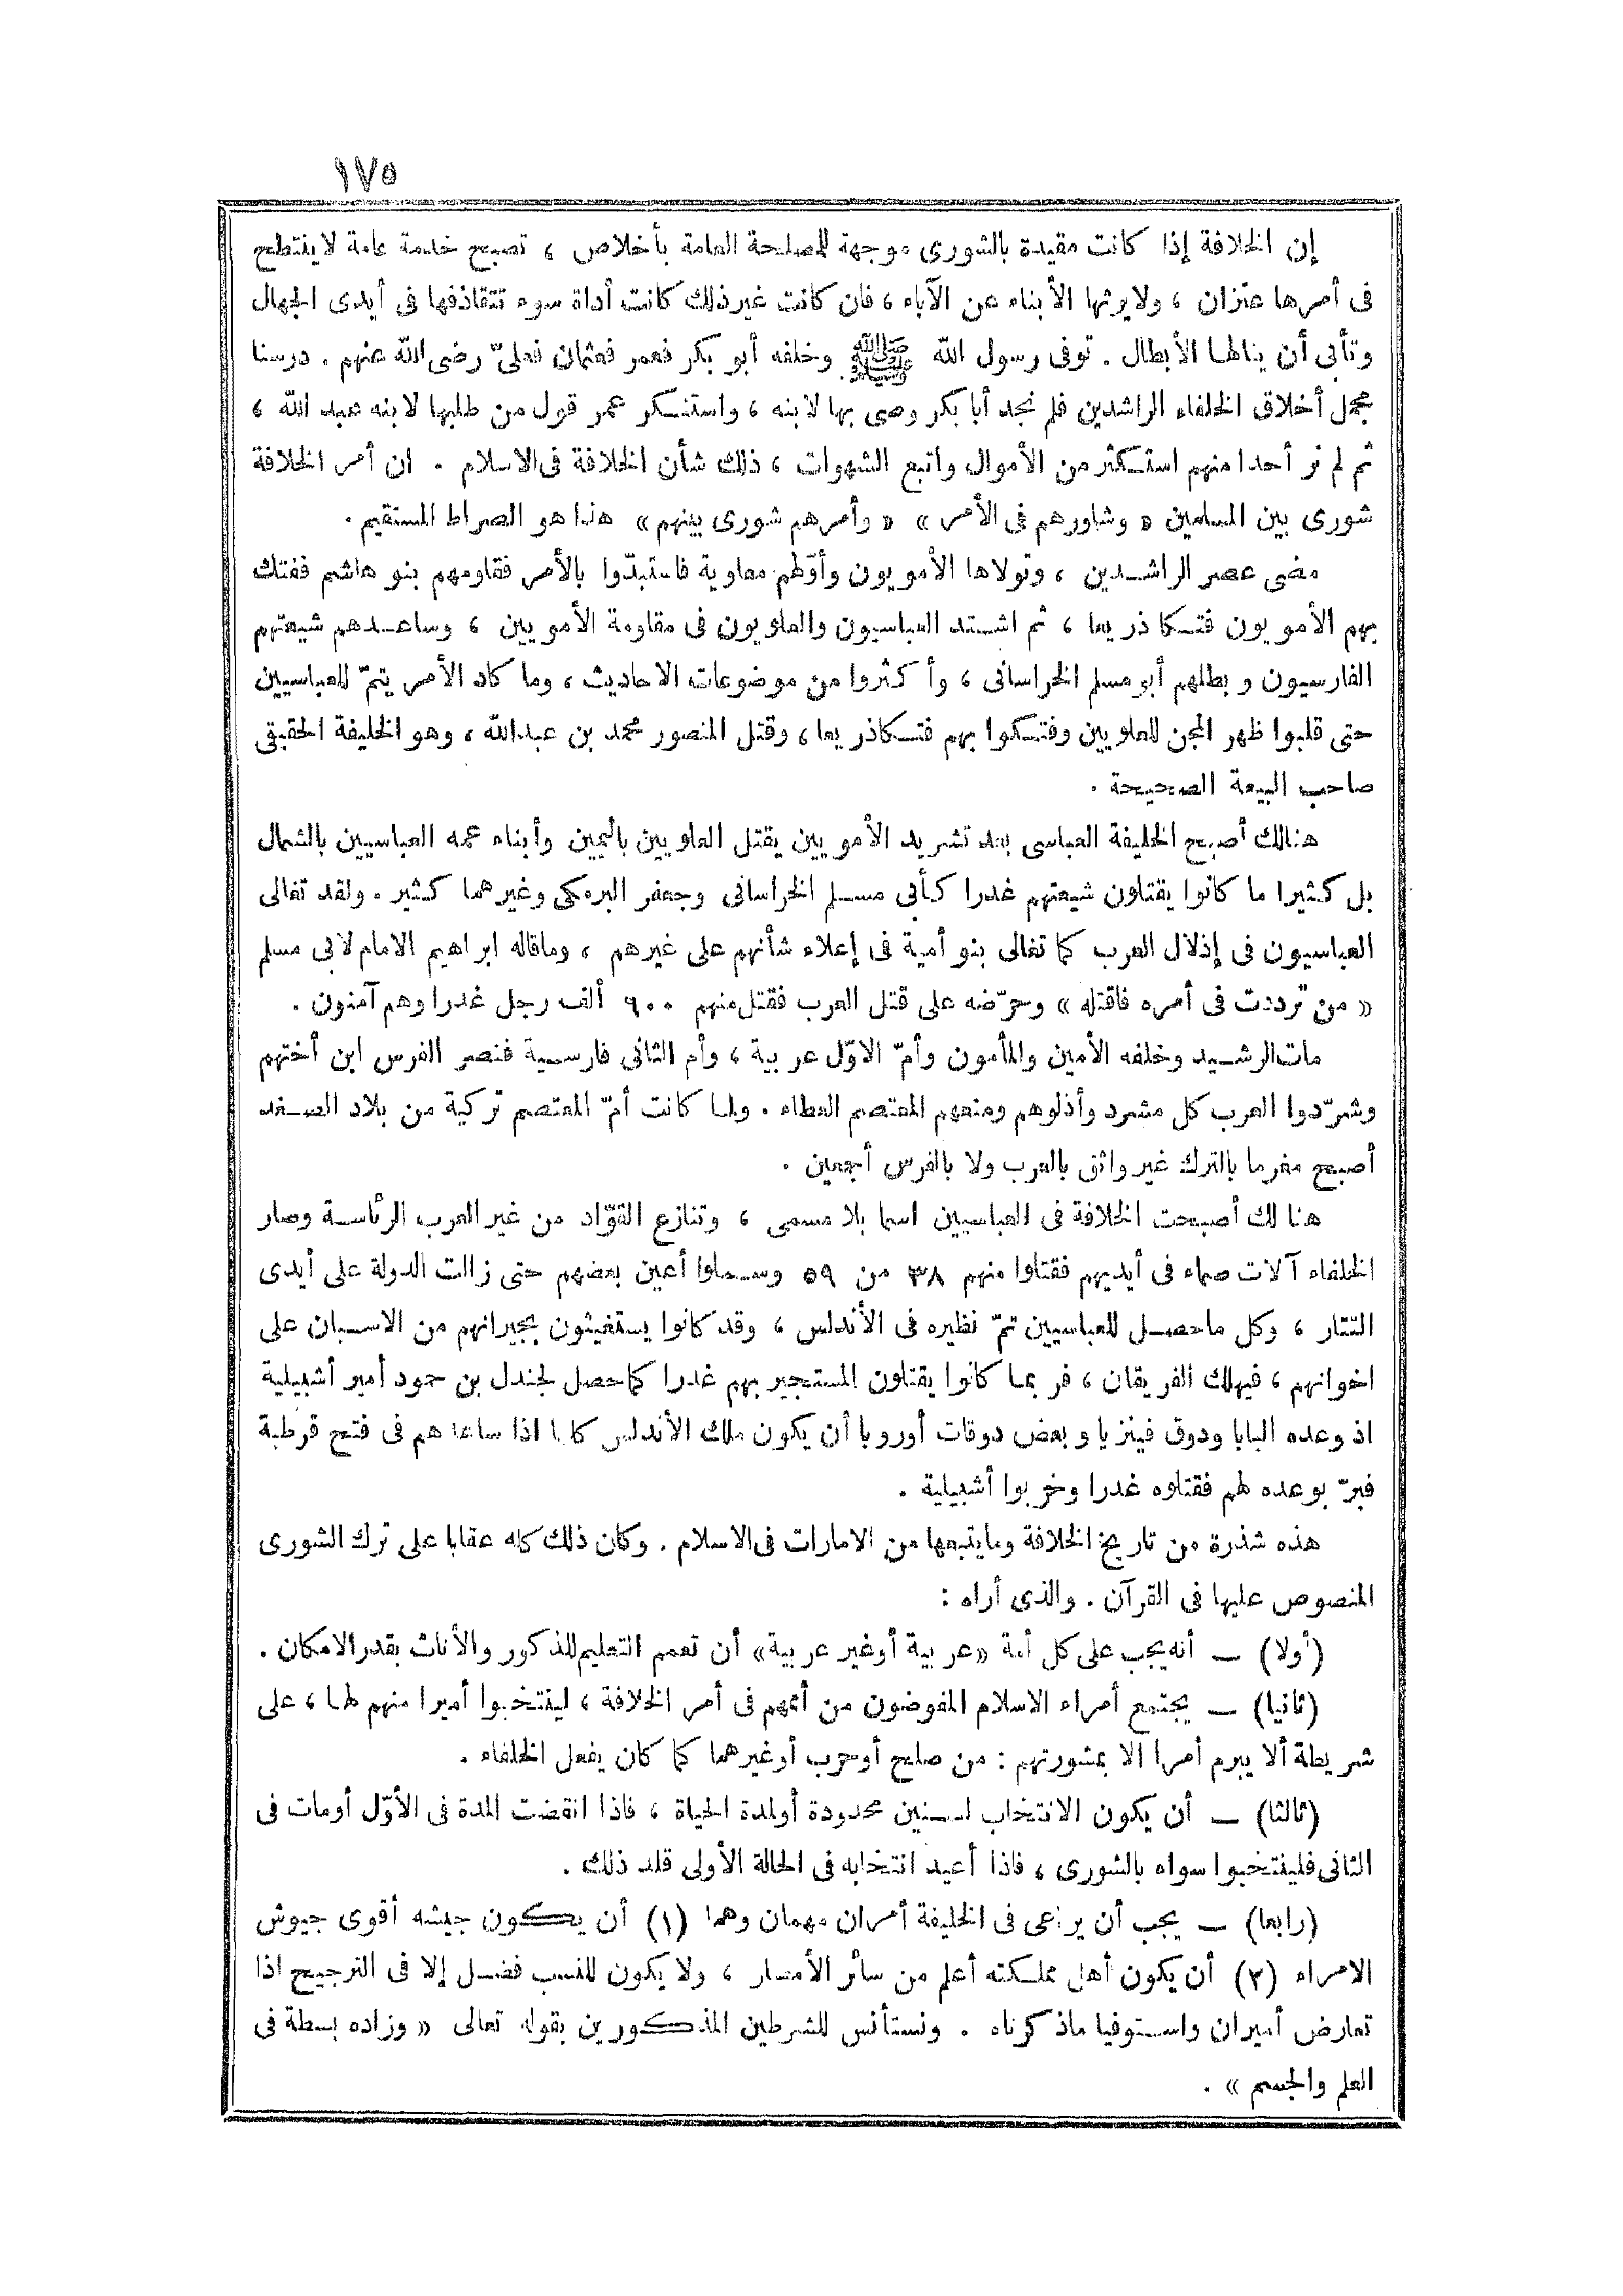 ١٧٥
إن الخلافة إذا كانت مقيدة بالشورى موجهة للمصلحة العامة بأخلاص ، تصبح خدمة عامة لاينتطح
فى أمرها عنزان ، ولايرثها الأبناء عن الآباء ، فان كانت غير ذلك كانت أداة سوء تتقاذفها فى أيدى الجهال
وتأبى أن ينالها الأبطال . توفى رسول الله ﷺ وخلفه أبو بكر فعمر فعثمان فعلىّ رضى الله عنهم . درسنا
مجمل أخلاق الخلفاء الراشدين فلم نجد أبا بكر وصى بها لابنه ، واستنكر عمر قول من طلبها لابنه عبد الله ،
ثم لم نر أحدا منهم استكثر من الأموال واتبع الشهوات ، ذلك شأن الخلافة فى الاسلام . ان أمر الخلافة
شورى بين المسلمين « وشاورهم فى الأمر » « وأمرهم شورى بينهم » هذا هو الصراط المستقيم .
مضى عصر الراشدين ، وتولاها الأمويون وأوّلهم معاوية فاستبدّوا بالأمر فقاومهم بنو هاشم ففتك
بهم الأمويون فتكا ذريعا ، ثم اشتد العباسيون والعلويون فى مقاومة الأمويين ، وساعدهم شيعتهم
الفارسيون وبطلهم أبو مسلم الخراسانى ، وأكثروا من موضوعات الاحاديث ، وما كاد الأمر يتمّ للعباسيين
حتى قلبوا ظهر المجن للعلويين وفتكوا بهم فتكا ذريعا ، وقتل المنصور محمد بن عبدالله ، وهو الخليفة الحقيقى
صاحب البيعة الصحيحة .
هنالك أصبح الخليفة العباسى بعد تشريد الأمويين يقتل العلويين باليمين وأبناء عمه العباسيين بالشمال
بل كثيرا ما كانوا يقتلون شيعتهم غدرا كأبى مسلم الخراسانى وجعفر البرمكى وغيرهما كثير . ولقد تغالى
العباسيون فى إذلال العرب كما تغالى بنو أمية فى إعلاء شأنهم على غيرهم ، وماقاله ابراهيم الامام لابى مسلم
« من ترددت فى أمره فاقتله » وحرّضه على قتل العرب فقتل منهم ٦٠٠ ألف رجل غدرا وهم آمنون .
مات الرشيد وخلفه الأمين والمأمون وأمّ الاوّل عربية ، وأم الثانى فارسية فنصر الفرس ابن أختهم
وشرّدوا العرب كل مشرد وأذلوهم ومنعهم المعتصم العطاء . ولما كانت أمّ المعتصم تركية من بلاد الصغد
أصبح مغرما بالترك غير واثق بالعرب ولا بالفرس أجمعين .
هنا لك أصبحت الخلافة فى العباسيين اسما بلا مسمى ، وتنازع القوّاد من غير العرب الرئاسة وصار
الخلفاء آلات صماء فى أيديهم فقتلوا منهم ٣٨ من ٥٩ وسملوا أعين بعضهم حتى زالت الدولة على أيدى
التتار ، وكل ماحصل للعباسيين تمّ نظيره فى الأندلس ، وقد كانوا يستغيثون بجيرانهم من الاسبان على
اخوانهم ، فيهلك الفريقان ، فربما كانوا يقتلون المستجير بهم غدرا كما حصل لجندل بن حمود أمير أشبيلية
اذ وعده البابا ودوق فينزيا وبعض دوقات أوروبا أن يكون ملك الأندلس كلها اذا ساعدهم فى فتح قرطبة
فبرّ بوعده لهم فقتلوه غدرا وخربوا أشبيلية .
هذه شذرة من تاريخ الخلافة ومايتبعها من الامارات فى الاسلام . وكان ذلك كله عقابا على ترك الشورى
المنصوص عليها فى القرآن . والذى أراه :
(أولا) — أنه يجب على كل أمة «عربية أوغير عربية» أن تعمم التعليم للذكور والأناث بقدر الامكان .
(ثانيا) — يجتمع أمراء الاسلام المفوضون من أممهم فى أمر الخلافة ، لينتخبوا أميرا منهم لها ، على
شريطة ألا يبرم أمرا الا بمشورتهم : من صلح أوحرب أوغيرهما كما كان يفعل الخلفاء .
(ثالثا) — أن يكون الانتخاب لسنين محدودة أولمدة الحياة ، فاذا انقضت المدة فى الأوّل أومات فى
الثانى فلينتخبوا سواه بالشورى ، فاذا أعيد انتخابه فى الحالة الأولى قلد ذلك .
(رابعا) — يجب أن يراعى فى الخليفة أمران مهمان وهما (١) أن يكون جيشه أقوى جيوش
الامراء (٢) أن يكون أهل مملكته أعلم من سائر الأمصار ، ولا يكون للنسب فضل إلا فى الترجيح اذا
تعارض أميران واستوفيا ماذكرناه . ونستأنس للشرطين المذكورين بقوله تعالى « وزاده بسطة فى
العلم والجسم » .